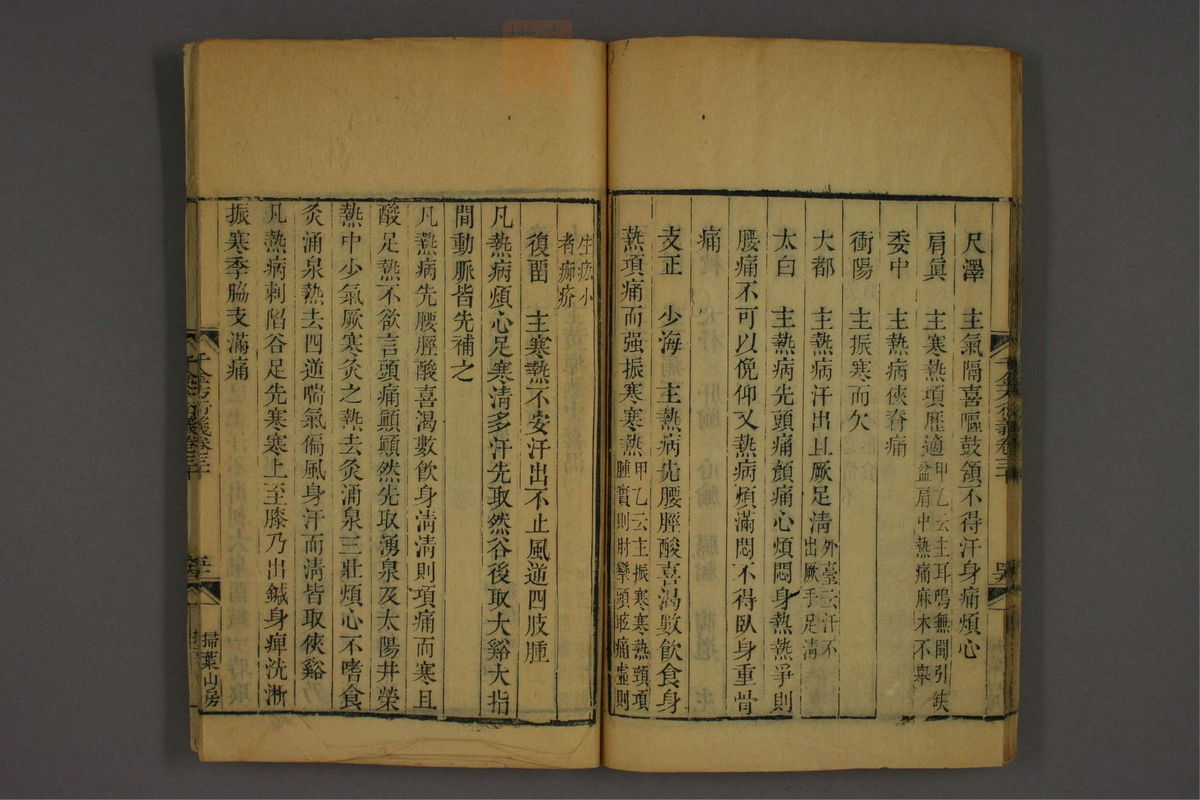 尺澤　主氣隔喜嘔鼓頷不得汗身痛煩心
肩真　主寒熱項歷適甲乙云主耳鳴無聞引缺
盆肩中熱痛麻木不舉
委中　主熱病俠脊痛
衝陽　主振寒而欠
大都　主熱病汗出且厥足清外臺云汗不
出厥手足清
太白　主熱病先頭痛顏痛心煩悶身熱熱爭則
腰痛不可以俛仰又熱病煩滿悶不得臥身重骨
痛
支正　少海　主熱病先腰脛酸喜渴數飲食身
熱項痛而强振寒寒熱甲乙云主振寒寒熱頸項
腫實則肘攣頭眩痛虛則
生疣小
者痂疥
復畱　主寒熱不安汗出不止風逆四肢腫
凡熱病煩心足寒清多汗先取然谷後取大谿大指
間動脈皆先補之
凡熱病先腰脛酸喜渴數飲身清清則項痛而寒且
酸足熱不欲言頭痛顚顚然先取湧泉及太陽井榮
熱中少氣厥寒灸之熱去灸涌泉三壯煩心不嗜食
灸涌泉熱去四逆喘氣偏風身汗而清皆取俠谿
凡熱病刺陷谷足先寒寒上至膝乃出鍼身痺洗淅
振寒季脇支滿痛
千金方衍義卷三十
掃葉山房